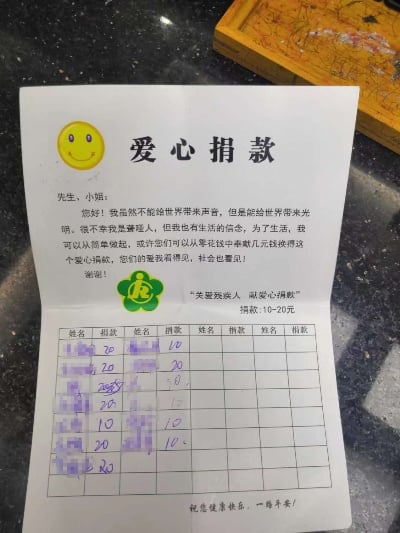 爱心捐款
先生、小姐：
您好！我虽然不能给世界带来声音，但是能给世界带来光
明。很不幸我是聋哑人，但我也有生活的信念，为了生活，我
可以从简单做起，或许您们可以从零花钱中奉献几元钱换得这
个爱心捐款，您们的爱我看得见，社会也看见！
谢谢！
“关爱残疾人 献爱心捐款”
捐款：10-20元
姓名 捐款 姓名 捐款 姓名 捐款 姓名 捐款
20 10
20 20
20
10 10
20 10
20
祝您健康快乐，一路平安！